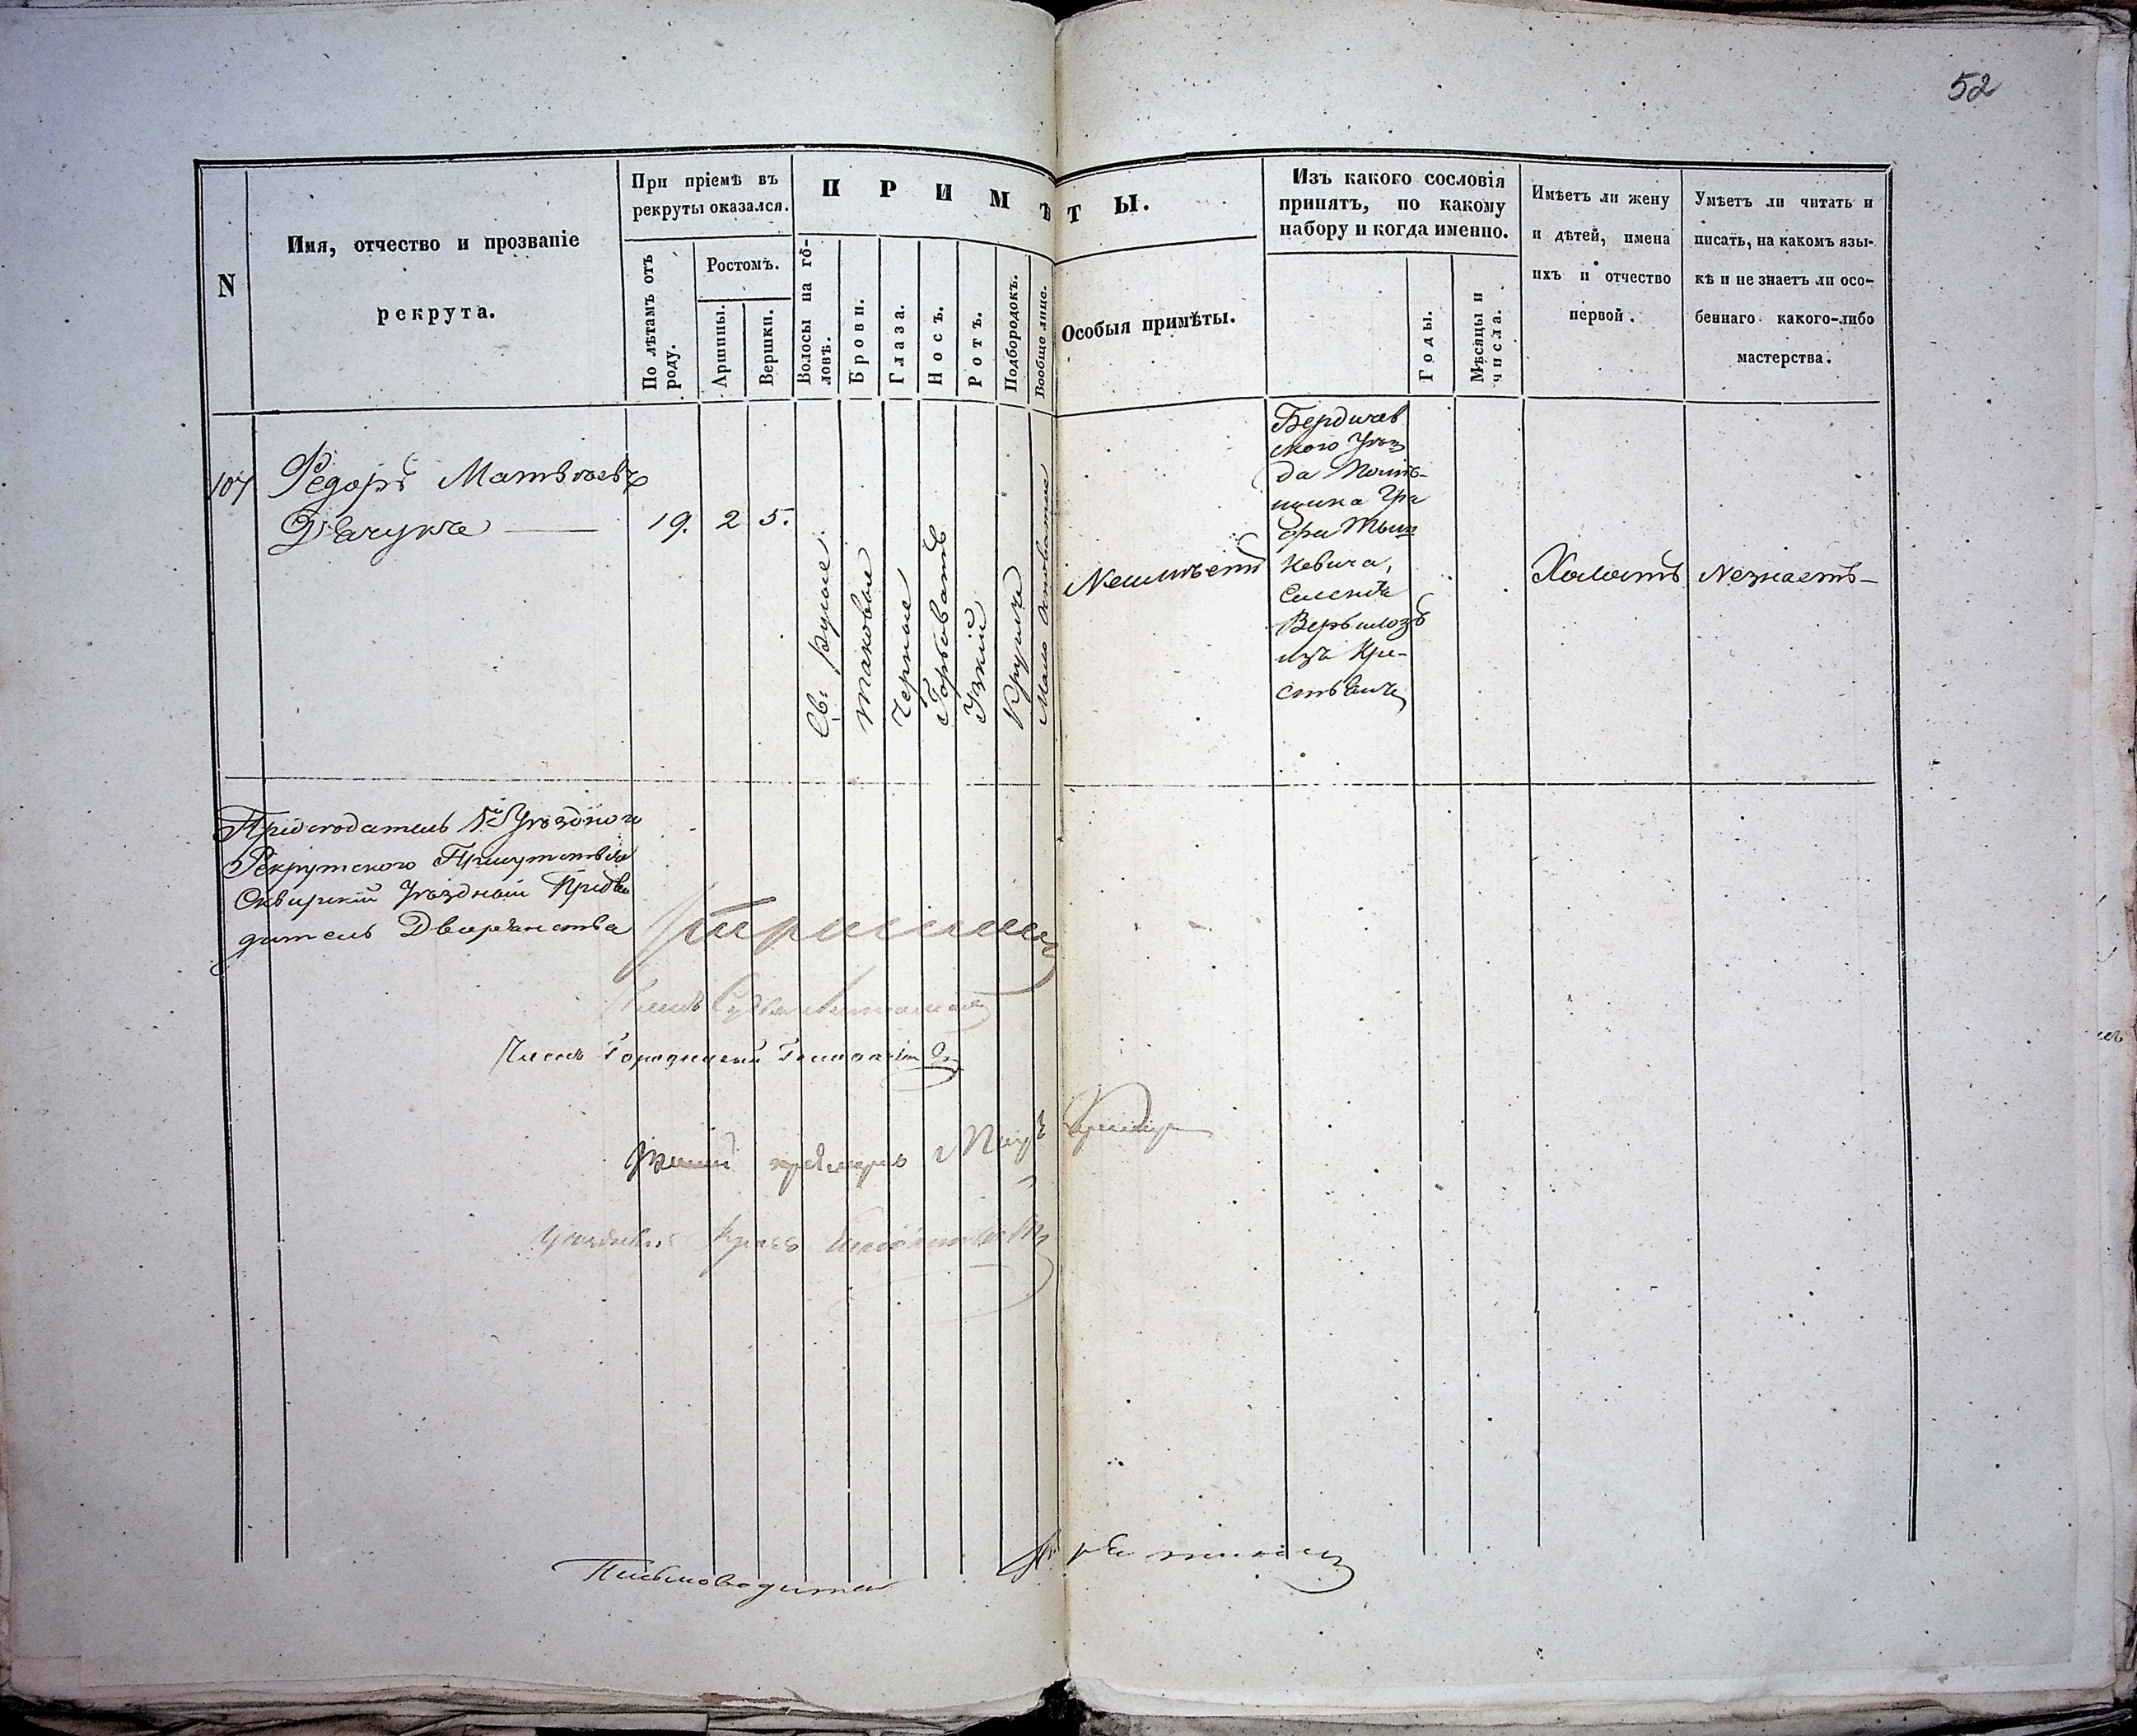 52
N
Имя, отчество и прозваніе
рекрута.
При пріемѣ въ
рекруты оказался.
По лѣтамъ отъ
роду.
Ростомъ.
Аршины.
Вершки.
ПРИМѢТЫ.
Волосы на го-
ловѣ.
Брови.
Глаза.
Носъ.
Ротъ.
Подбородокъ.
Вообще лице.
Особыя примѣты.
Изъ какого сословія
принятъ, по какому
набору и когда именно.
Годы.
Мѣсяцы и
числа.
Имѣетъ ли жену
и дѣтей, имена
ихъ и отчество
первой.
Умѣетъ ли читать и
писать, на какомъ язы-
кѣ и не знаетъ ли осо-
беннаго какого-либо
мастерства.
107
Ѳедоръ Матвѣевъ
19. 2 5.
Св: русые
таковые
Черные
Горбоватъ
Узкій
Круглъ
Мало
Неимѣетъ
Бердичев
ского Уѣз
да Помѣ-
щика Гра
фа Тыш
кевича,
Селенія
изъ Кре-
стьянъ
Холостъ
Незнаетъ
Предсѣдатель Уѣзднаго
Рекрутского Присутствія
Сквирскій Уѣздный Предво
дитель Дворянства
Членъ Городничій
Уѣздный Врачъ
Письмоводитель